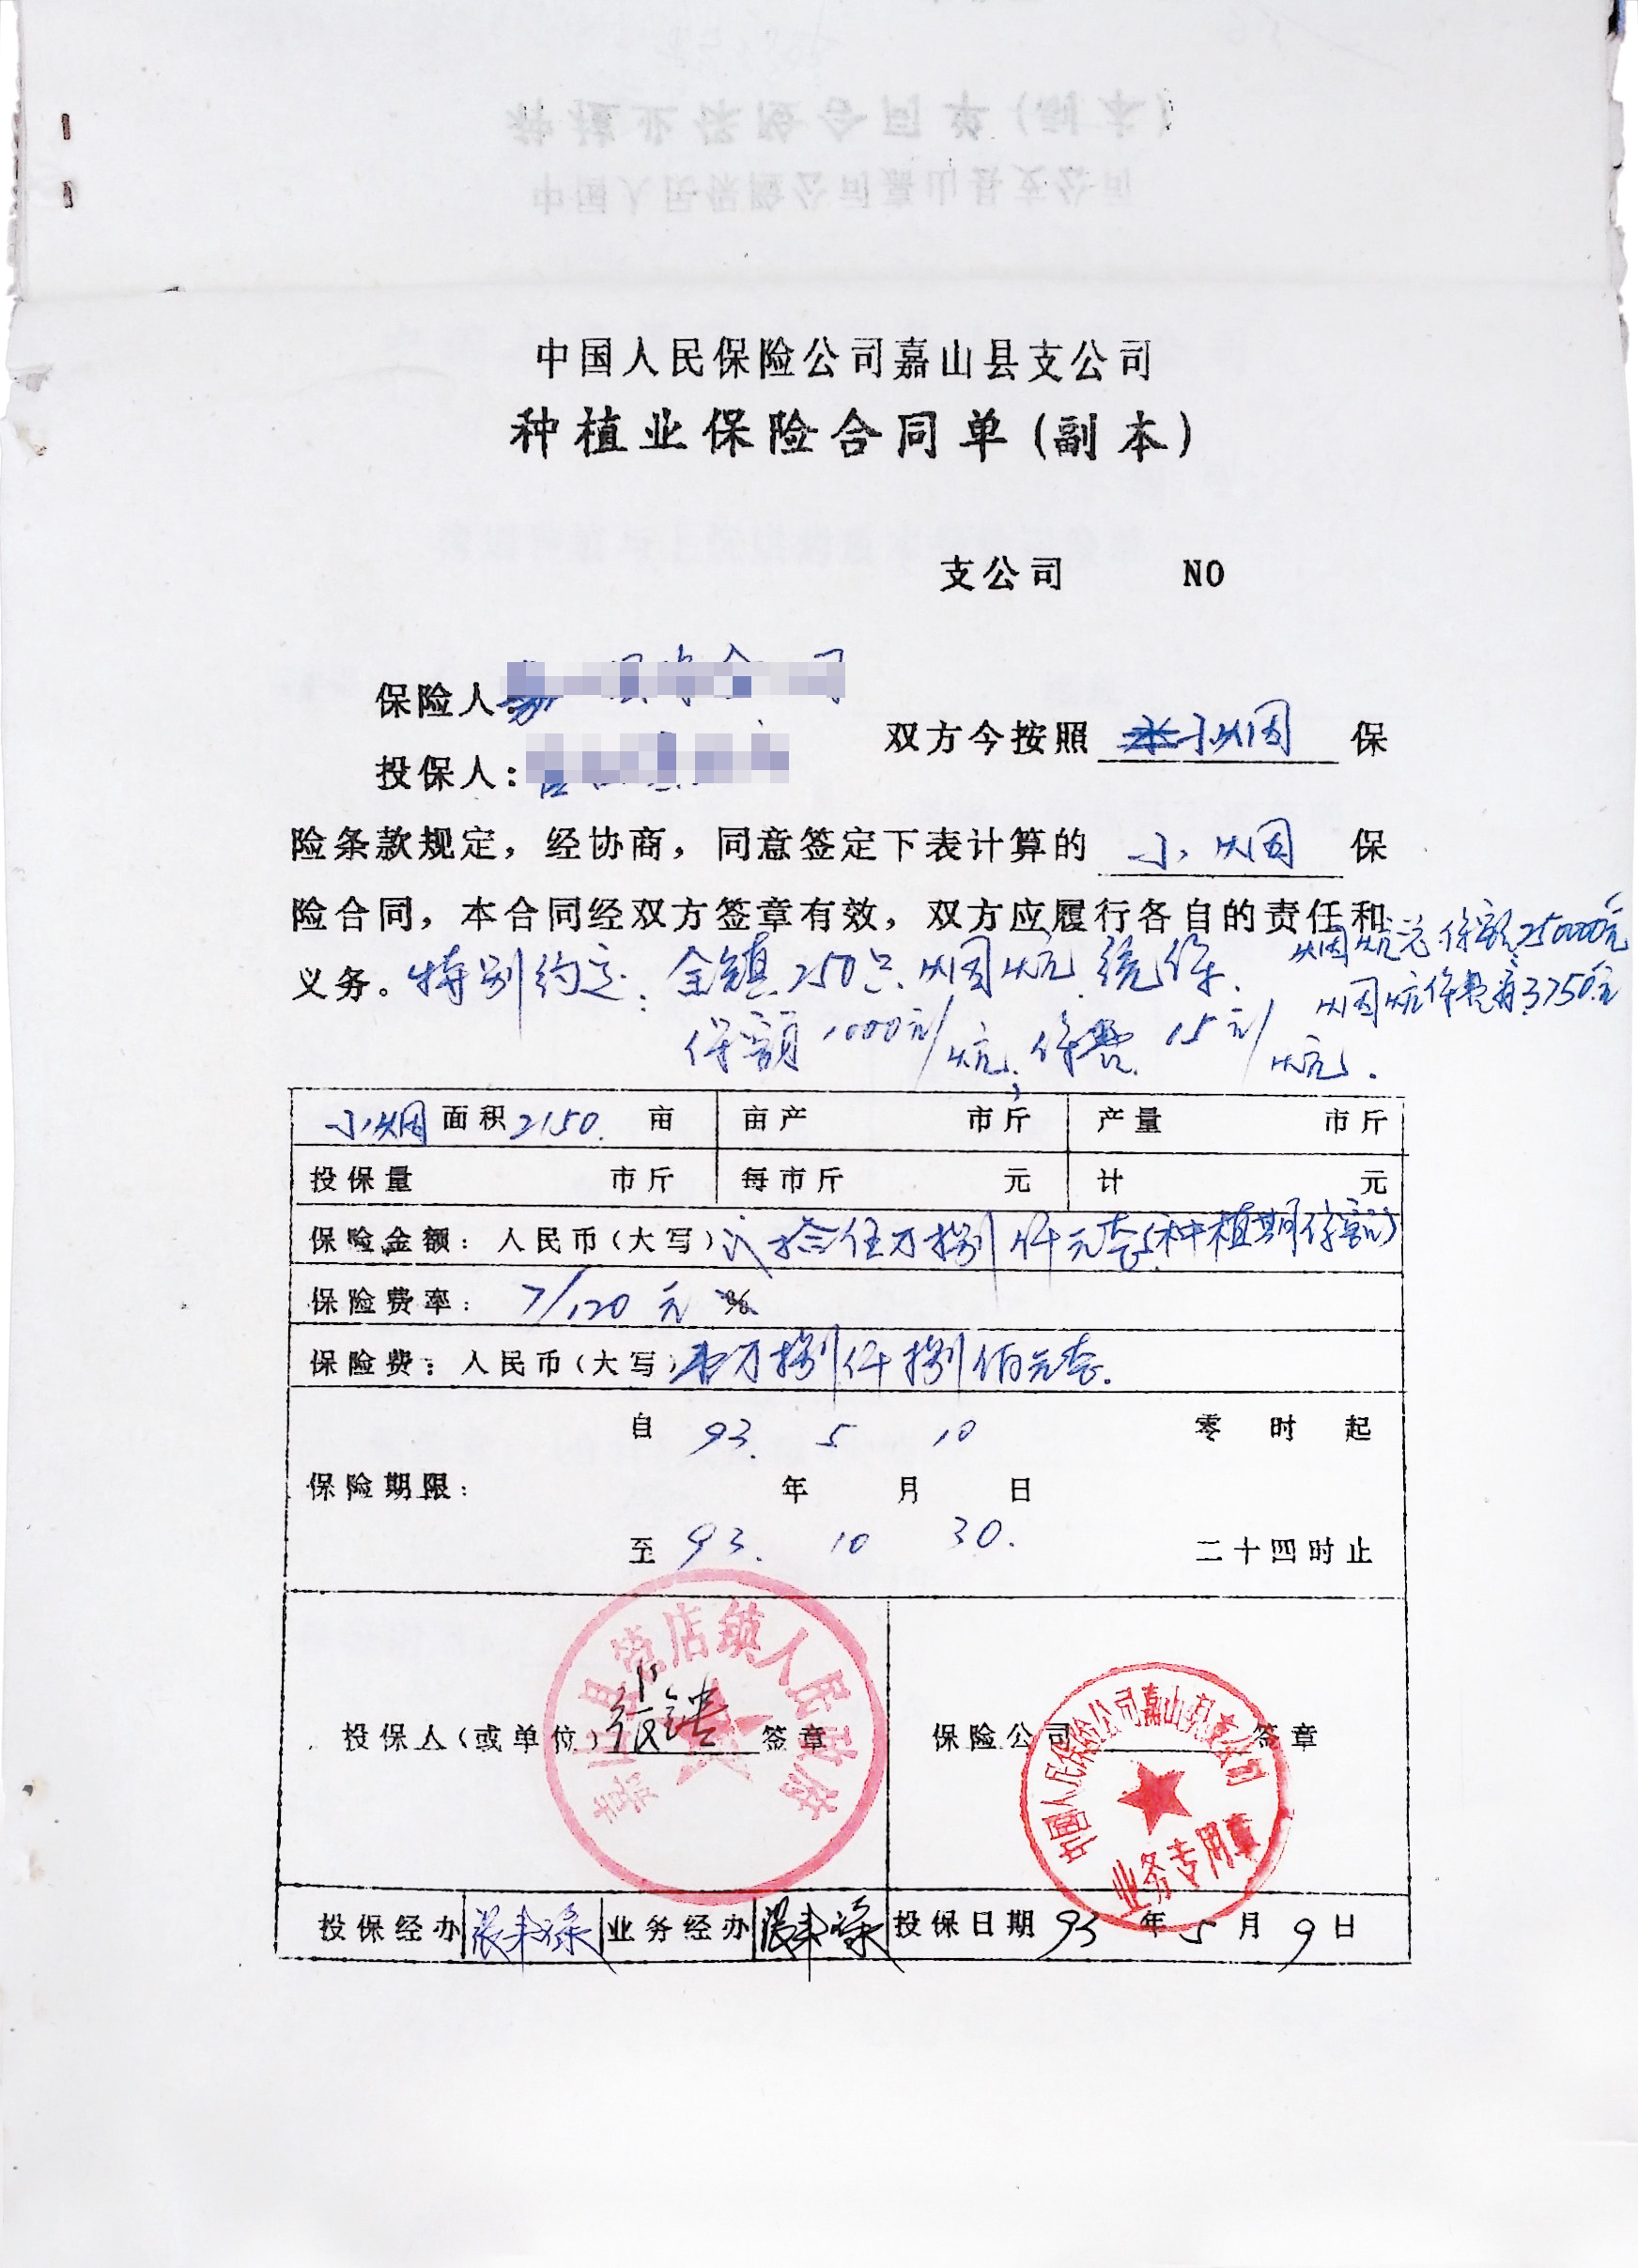 中国人民保险公司嘉山县支公司
种植业保险合同单(副本)
支公司 NO
保险人:
投保人:
双方今按照 小烟 保
险条款规定，经协商，同意签定下表计算的 小烟 保
险合同，本合同经双方签章有效，双方应履行各自的责任和
义务。特别约定: 全镇250只烟炕统保.
保额1000元/炕, 保费15元/炕.
烟炕总保额250000元
烟炕保费3750元
小烟面积2150. 亩 亩产 市斤 产量 市斤
投保量 市斤 每市斤 元 计 元
保险金额: 人民币(大写)贰拾伍万捌仟元整(种植期保额)
保险费率: 7/120元 %
保险费: 人民币(大写)壹万捌仟捌佰元整.
自 93. 5 10 零时起
保险期限: 年 月 日
至 93. 10 30. 二十四时止
投保人(或单位) 签章
县管店镇人民政府
保险公司 签章
中国人民保险公司嘉山县支公司
业务专用章
投保经办 业务经办 投保日期 93年5月9日